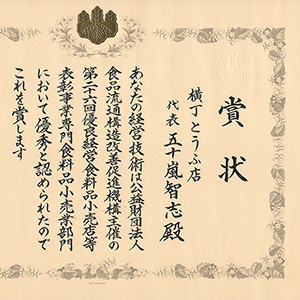 賞状
横丁とうふ店
代表 五十嵐智志殿
あなたの経営技術は公益財団法人
食品流通構造改善促進機構主催の
第二十六回優良経営食料品小売店等
表彰事業専門食料品小売業部門
において優秀と認められたので
これを賞します